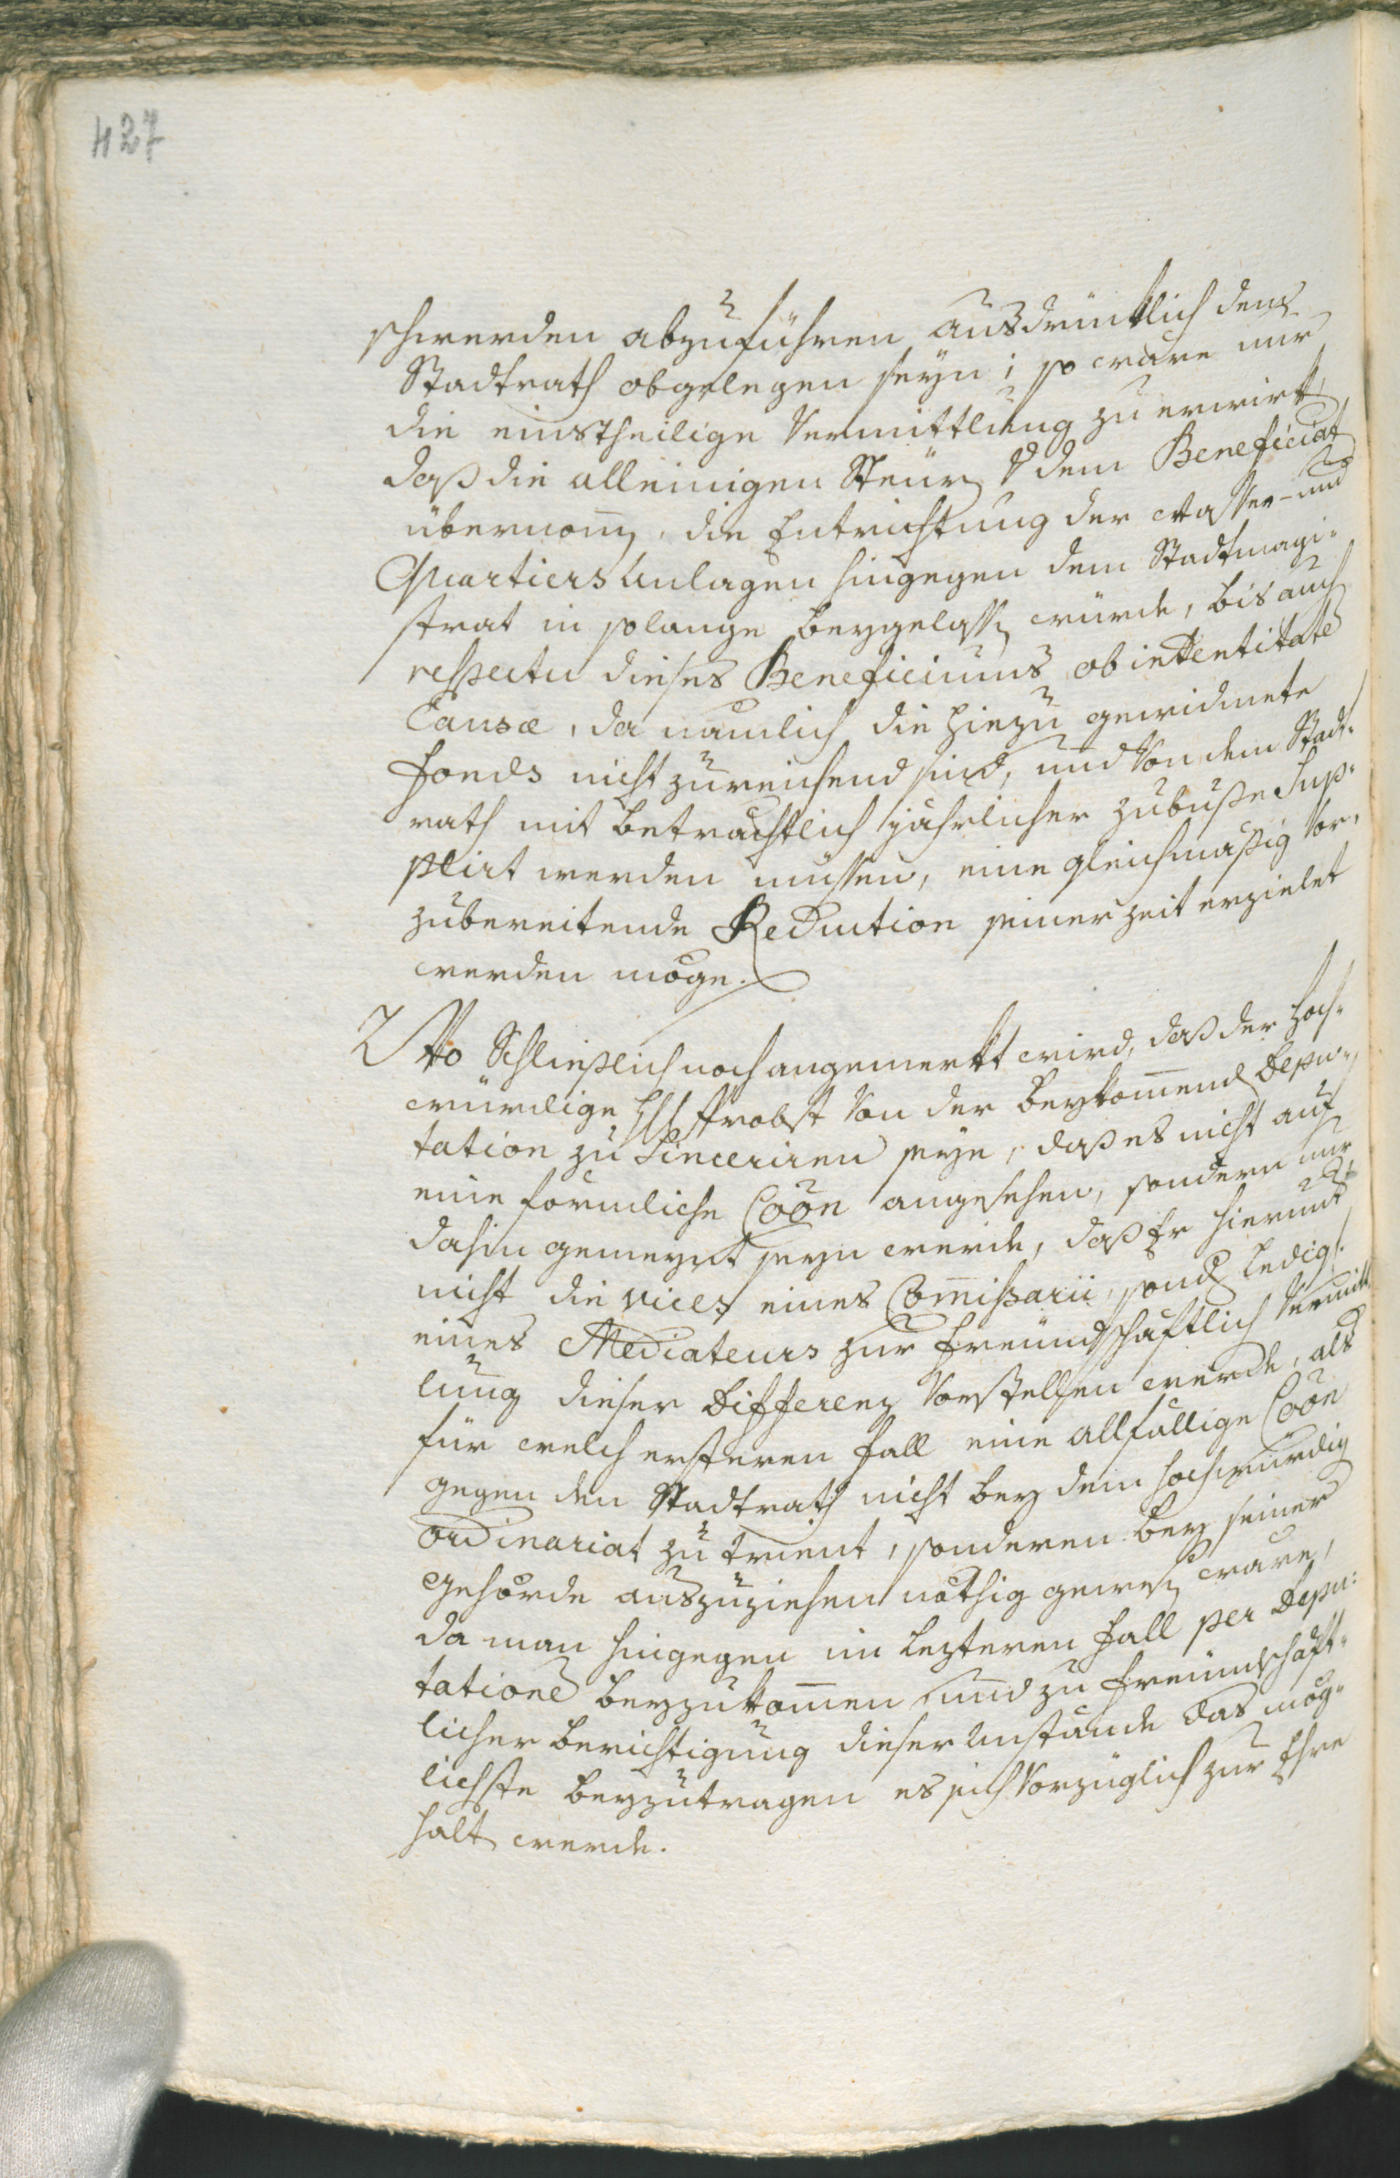 427
schwerden abzuführen ausdrüktlich dem
Stadtrath obgelegen seyn; so wäre nur
die einstheilige Vermittlung zu erwirkt,
daß die alleinigen Steür dem Beneficiat
übernom̄, die Entrichtung der Wasser- und
Quartiers Anlagen hingegen dem Stadtmagi-
strat in solange beygelass würde, bis auch
respectu dieses Beneficiums ob indentitate
Causæ, da nämlich die hiezu gewidmete
fonds nicht zureichend sind, und von dem Stadt-
rath mit beträchtlich jährlicher zubuße Sup-
plirt werden müssen, eine gleichmäßig vor-
zubereitende Reduction seiner zeit erzielet
werden möge.
7tto Schließlich noch angemerkt wird, daß der hoch-
würdige H Probst von der beykom̄end Depu-
tation zu Sinceriren seye, daß es nicht auf
eine förmliche Coōn angesehen, sondern nur
dahin gemeynt seyn werde, daß Er hierunt
nicht die vices eines Com̄ißarii, sond ledigl.
eines Mediateurs zur freundschäftlich Vermitt
lung dieser Differenz vorstellen werde, als
für welch ersteren fall eine allfällige Coōn
gegen den Stadtrath nicht bey dem hochwürdig
ordinariat zu trient, sonderen bey seiner
gehörde auszuziehen nöthig gewes wäre,
da man hingegen im lezteren fall per Depu-
tatione beyzukom̄en und zu freundschäft-
licher berichtigung dieser Anstände das mög-
lichste beyzutragen es sich vorzüglich zur Ehre
halt werde.